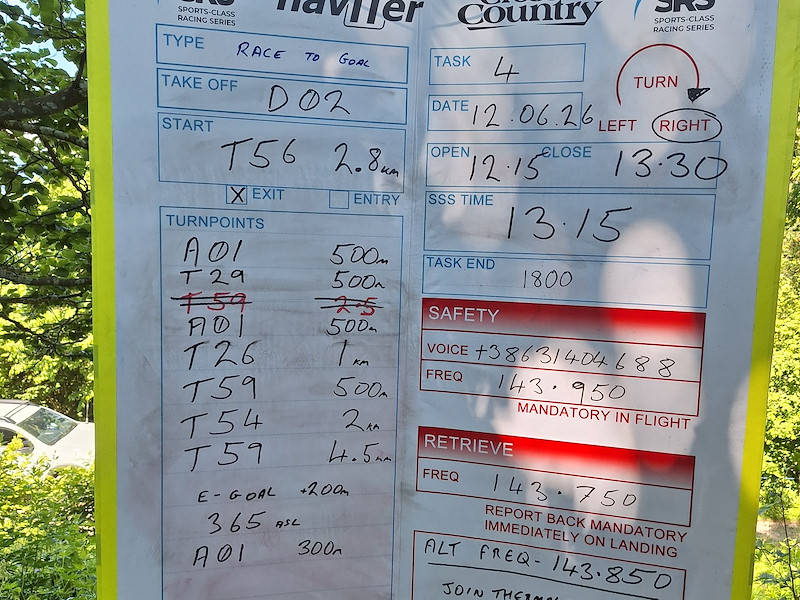 SRS
SPORTS-CLASS
RACING SERIES
naviter
TYPE RACE TO GOAL
TAKE OFF D02
START
T56 2.8km
X EXIT ENTRY
TURNPOINTS
A01 500m
T29 500m
T59 2.5
A01 500m
T26 1km
T59 500m
T54 2km
T59 4.5km
E-GOAL +200m
365 ASL
A01 300m
Cross
Country
SRS
SPORTS-CLASS
RACING SERIES
TASK 4
DATE 12.06.26
TURN
LEFT RIGHT
OPEN 12.15 CLOSE 13.30
SSS TIME
13.15
TASK END
1800
SAFETY
VOICE +38631404688
FREQ 143.950
MANDATORY IN FLIGHT
RETRIEVE
FREQ 143.750
REPORT BACK MANDATORY
IMMEDIATELY ON LANDING
ALT FREQ - 143.850
JOIN